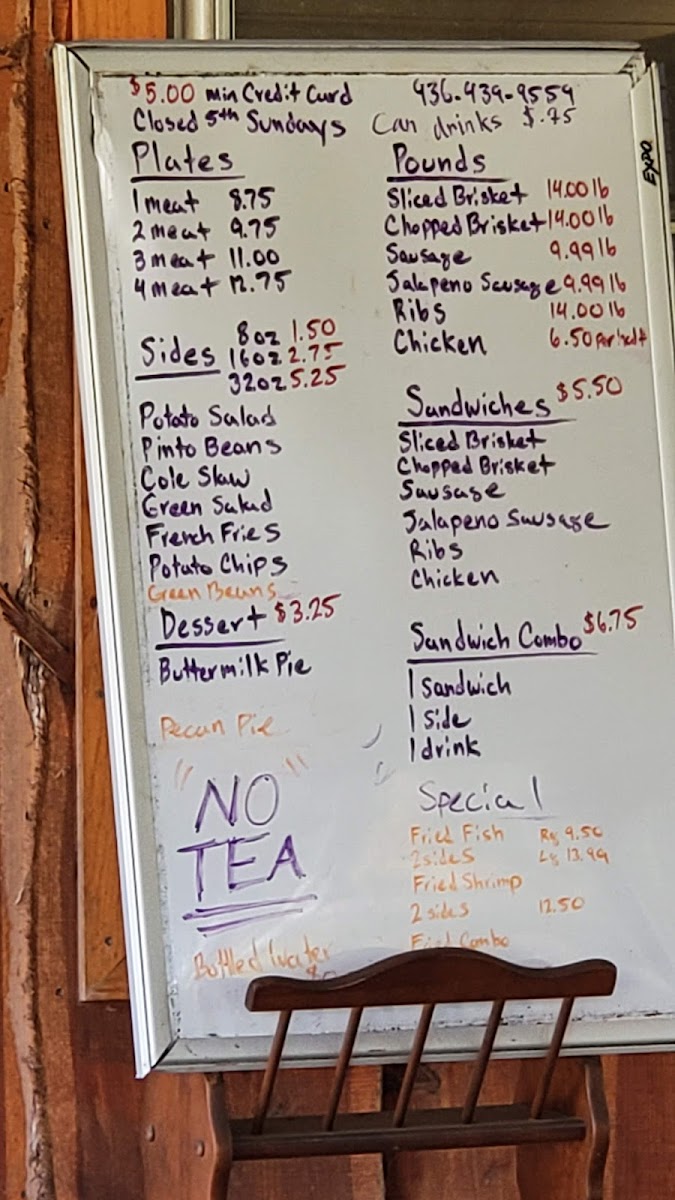 $5.00 min Credit Card
Closed 5th Sundays
936-439-9559
Can drinks $.75
Plates
1 meat 8.75
2 meat 9.75
3 meat 11.00
4 meat 12.75
Sides 8oz 1.50
16oz 2.75
32oz 5.25
Potato Salad
Pinto Beans
Cole Slaw
Green Salad
French Fries
Potato Chips
Green Beans
Dessert $3.25
Buttermilk Pie
Pecan Pie
"NO
TEA"
Bottled Water
Pounds
Sliced Brisket 14.00 lb
Chopped Brisket 14.00 lb
Sausage 9.99 lb
Jalapeno Sausage 9.99 lb
Ribs 14.00 lb
Chicken 6.50 per half
Sandwiches $5.50
Sliced Brisket
Chopped Brisket
Sausage
Jalapeno Sausage
Ribs
Chicken
Sandwich Combo $6.75
1 Sandwich
1 Side
1 drink
Special
Fried Fish Rg 9.50
2 sides Lg 13.99
Fried Shrimp
2 sides 12.50
Fried Combo
EXPO